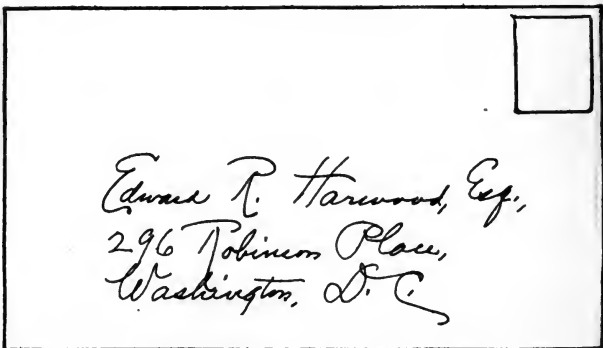 Edward R. Harwood, Esq.,
296 Robinson Place,
Washington, D.C.